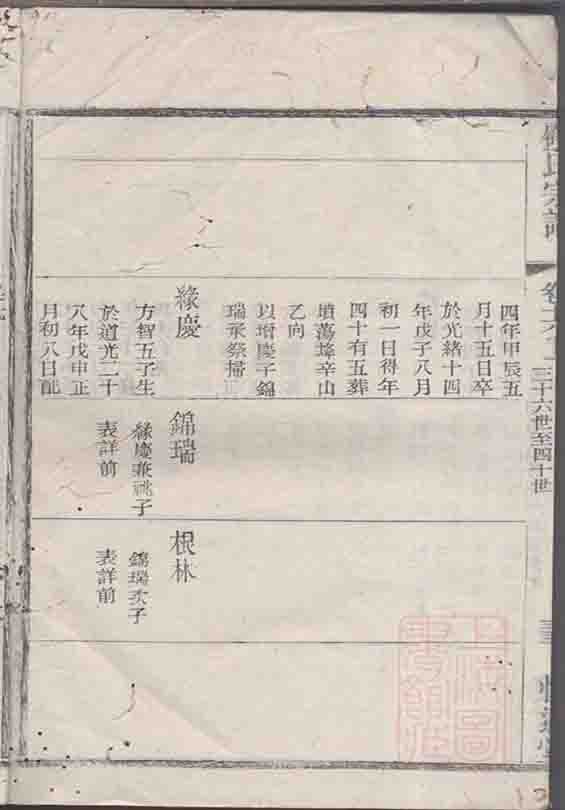 氏宗譜
三十六世至四十世
四年甲辰五
月十五日卒
於光緒十四
年戊子八月
初一日得年
四十有五葬
墳蕩墶辛山
乙向
以增慶子錦
瑞承祭掃
緣慶
方智五子生
於道光二十
八年戊申正
月初八日配
錦瑞
緣慶兼祧子
表詳前
根林
錦瑞次子
表詳前